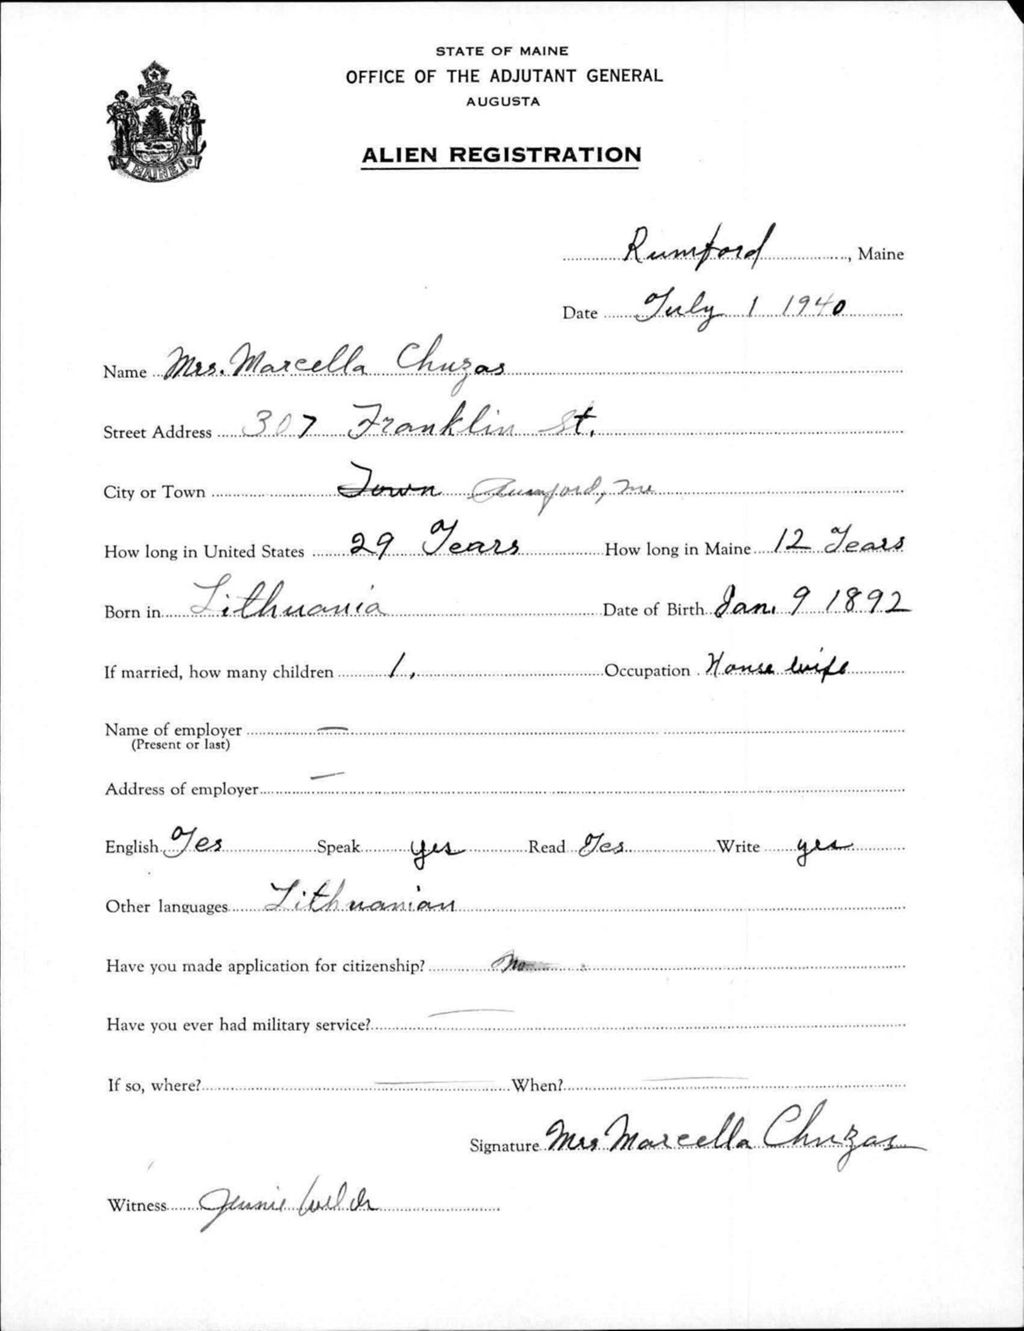 STATE OF MAINE
OFFICE OF THE ADJUTANT GENERAL
AUGUSTA
ALIEN REGISTRATION
MAINE
Rumford, Maine
Date July 1 1940
Name Mrs. Marcella Chuzas
Street Address 307 Franklin St.
City or Town Town Rumford, Me
How long in United States 29 Years How long in Maine 12 Years
Born in Lithuania Date of Birth Jan. 9 1892
If married, how many children 1, Occupation House wife
Name of employer —
(Present or last)
Address of employer —
English Yes Speak yes Read Yes Write yes
Other languages Lithuanian
Have you made application for citizenship? No
Have you ever had military service? —
If so, where? — When? —
Signature Mrs Marcella Chuzas
Witness Jennie Welch